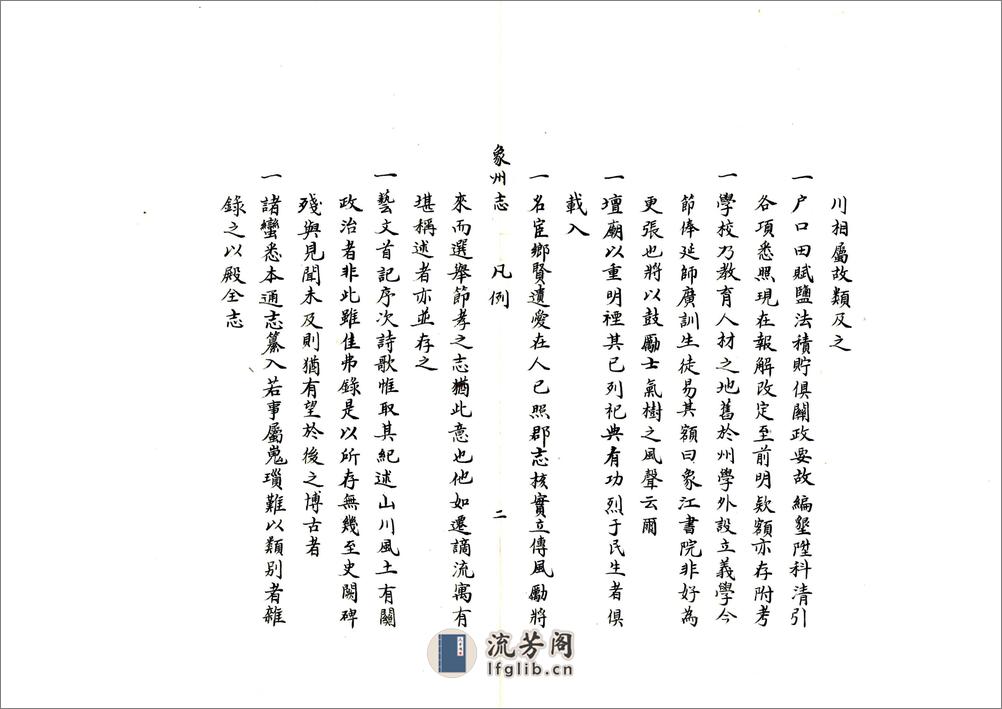 川相屬故類及之
一户口田賦鹽法積貯俱關政要故編墾陞科清引
各項悉照現在報解改定至前明欵額亦存附考
一學校乃教育人材之地舊於州學外設立義學今
節俸延師廣訓生徒易其額曰象江書院非好為
更張也將以鼓勵士氣樹之風聲云爾
一壇廟以重明禋其已列祀典有功烈于民生者俱
載入
一名宦鄉賢遺愛在人已照郡志核實立傳風勵將
象州志 凡例 二
來而選舉節孝之志猶此意也他如遷謫流寓有
堪稱述者亦並存之
一藝文首記序次詩歌惟取其紀述山川風土有關
政治者非此雖佳弗錄是以所存無幾至史闕碑
殘與見聞未及則猶有望於後之博古者
一諸蠻悉本通志纂入若事屬嵬瑣難以類别者雜
錄之以殿全志
流芳阁
lfglib.cn